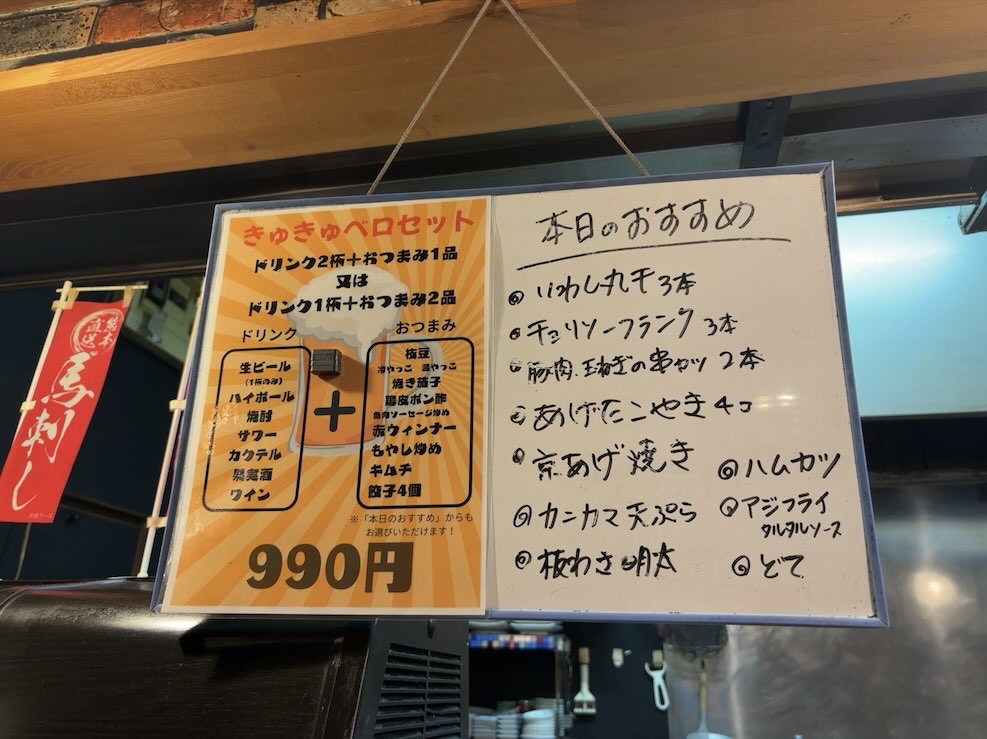 熊本
直送
馬刺し
きゅきゅベロセット
ドリンク2杯＋おつまみ1品
又は
ドリンク1杯＋おつまみ2品
ドリンク
生ビール
(1杯のみ)
ハイボール
焼酎
サワー
カクテル
果実酒
ワイン
＋
おつまみ
枝豆
冷やっこ 温やっこ
焼き茄子
鶏皮ポン酢
魚肉ソーセージ炒め
赤ウィンナー
もやし炒め
キムチ
餃子4個
※「本日のおすすめ」からも
お選びいただけます！
990円
本日のおすすめ
◎ いわし丸干 3本
◎ チョリソーフランク 3本
◎ 豚肉、玉ねぎの串カツ 2本
◎ あげたこやき 4コ
◎ 京あげ焼き
◎ カニカマ天ぷら
◎ 板わさ明太
◎ ハムカツ
◎ アジフライ
タルタルソース
◎ どて